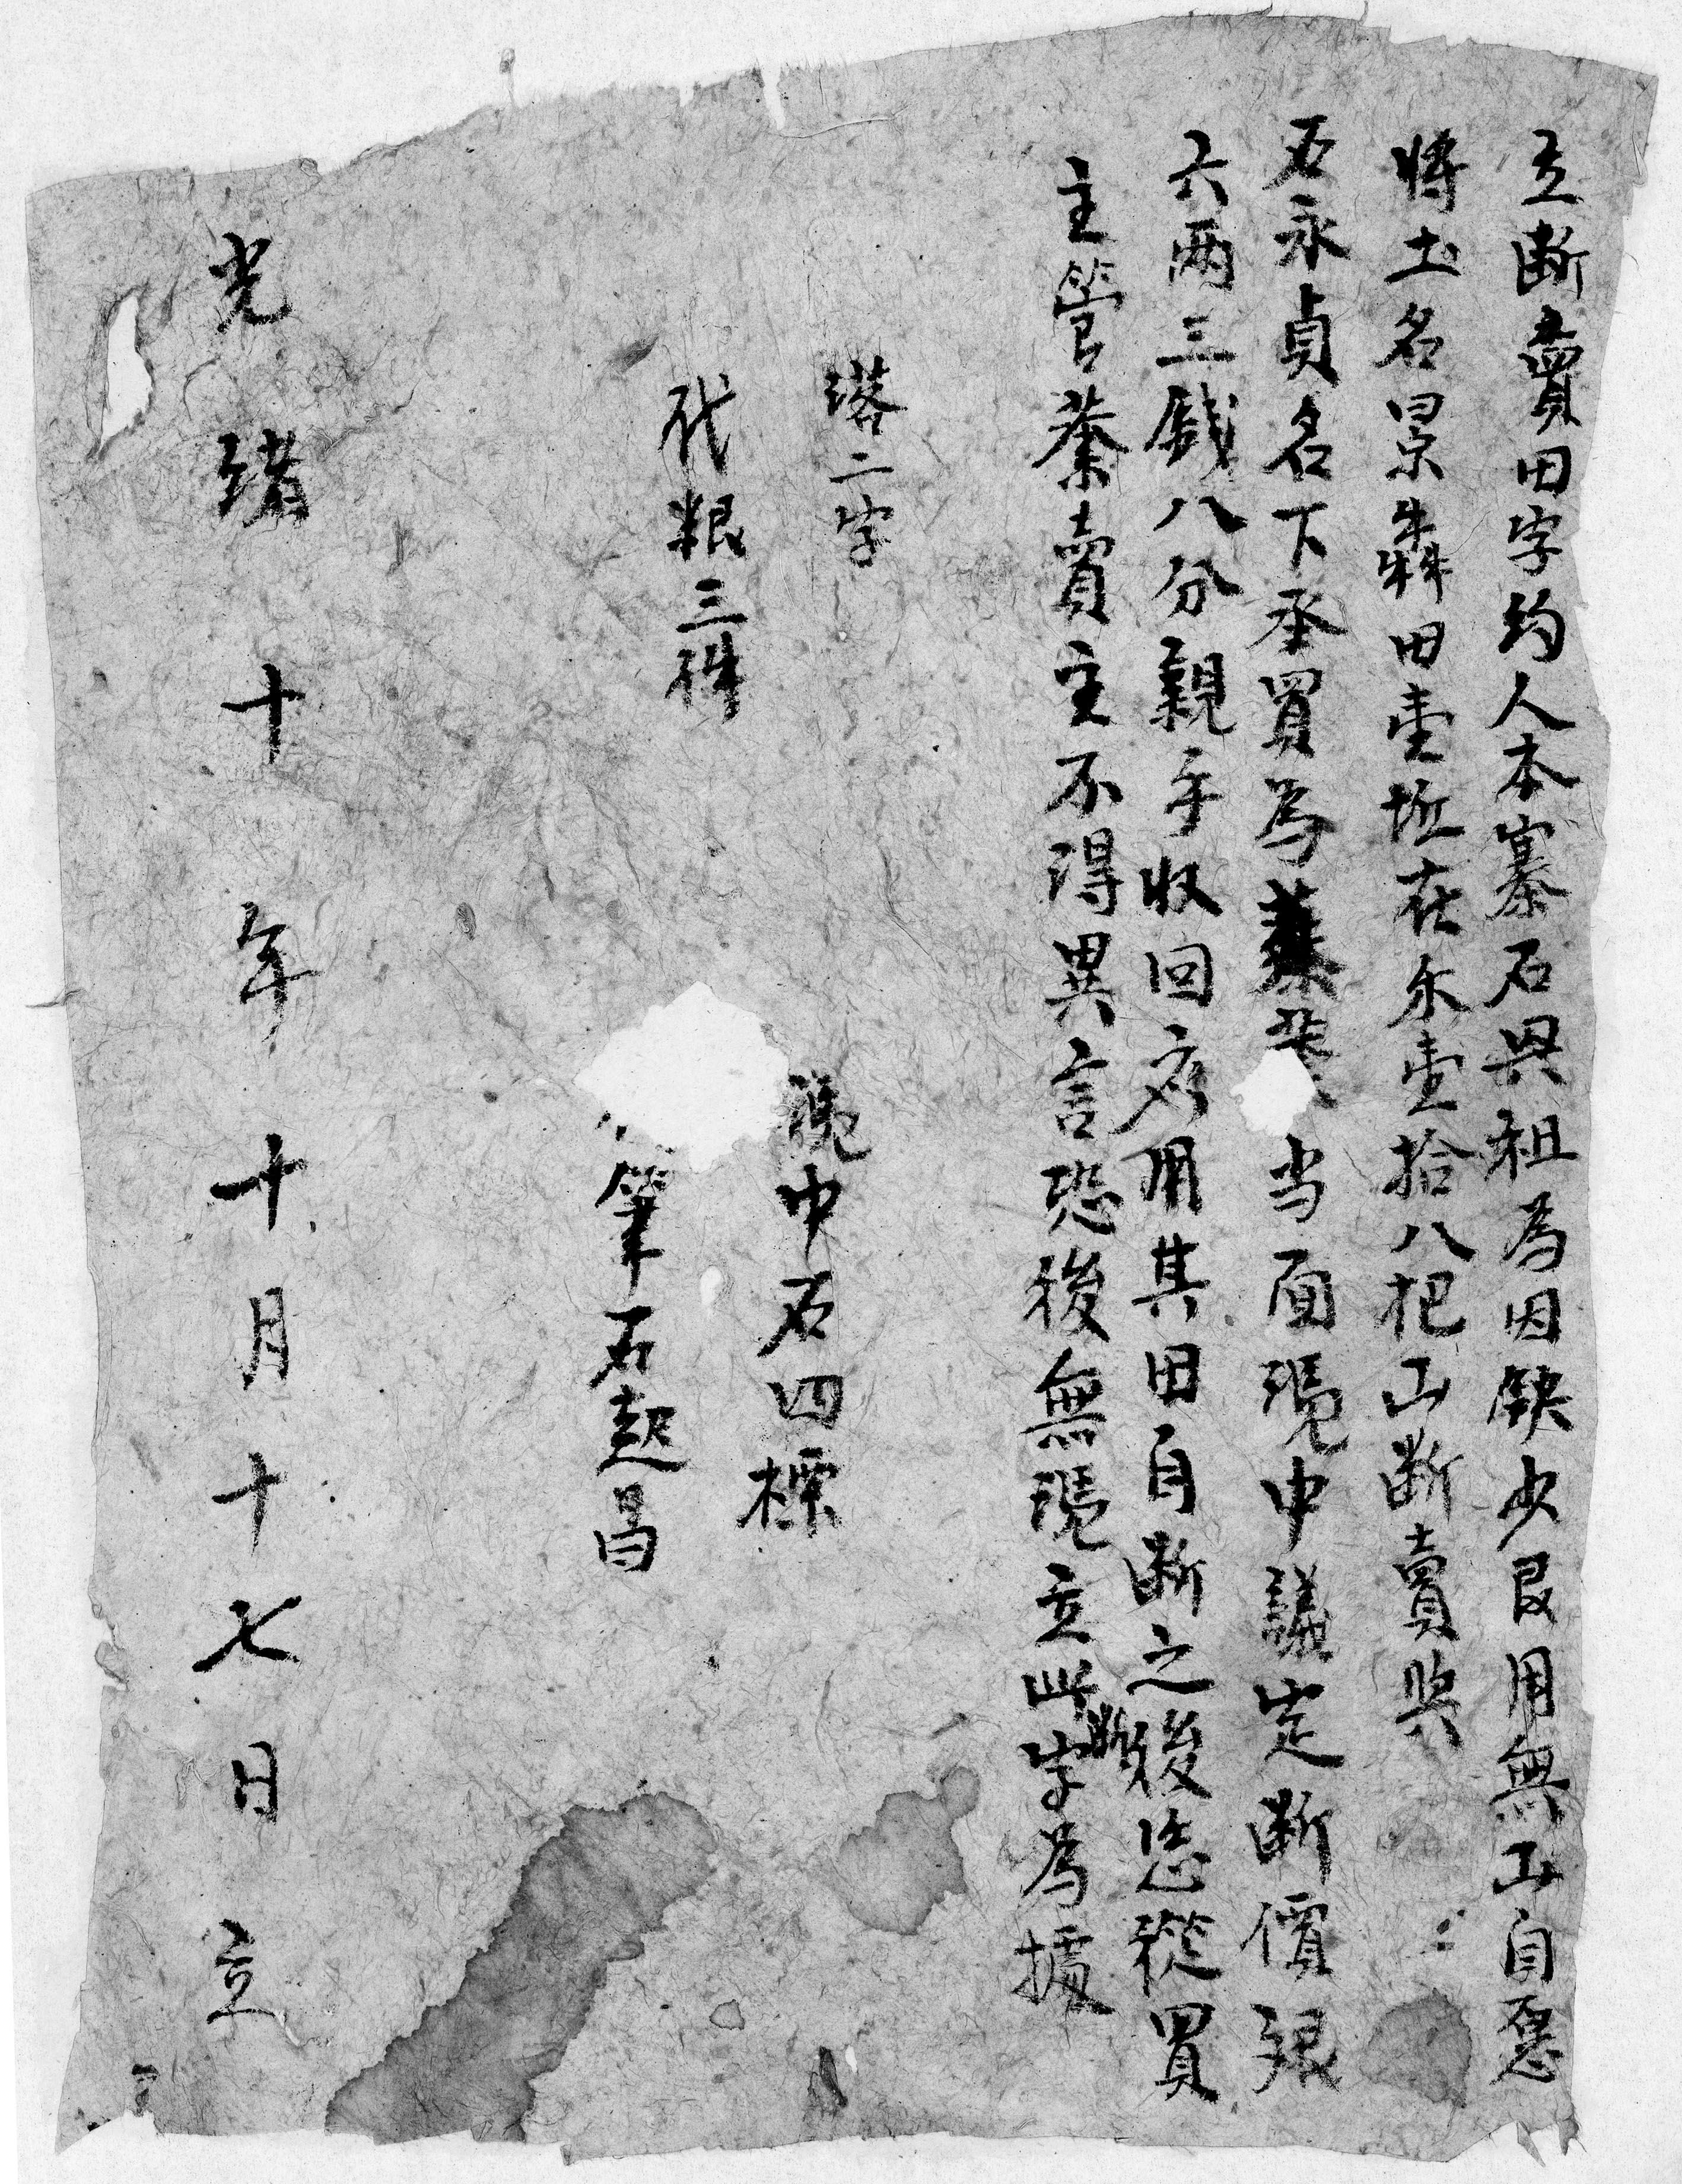 立斷賣田字約人本寨石興祖為因缺少艮用無山自愿
將土名景犇田壹坵在禾壹拾八把山斷賣與
石永貞名下承買為業 当面凴中議定斷價銀
六両三戲八分親手收回應用其田自斷之後恁從買
主管業賣主不得異言恐後無凴立此斷字為據
塔二字
代粮三銖
凴中石四標
筆石起昌
光緒十年十月十七日立